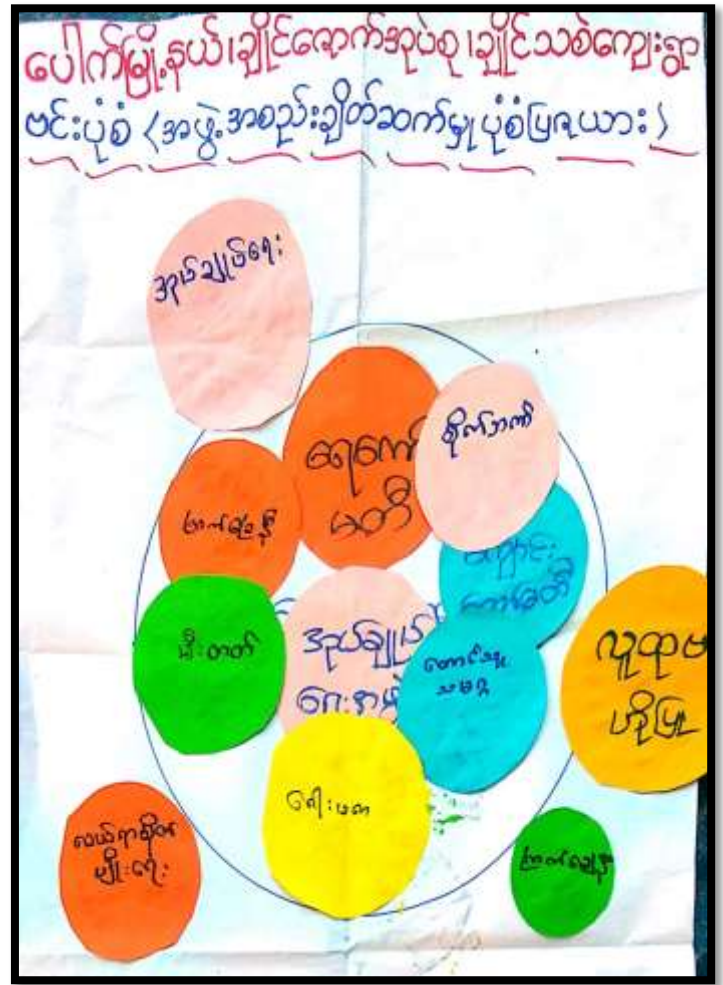 ပေါက်မြို့နယ်၊ချိုင်ဇောက်အုပ်စု၊ချိုင်သစ်ကျေးရွာ
ဗင်းပုံစံ <အဖွဲ့အစည်းချိတ်ဆက်မှုပုံစံပြဇယား>
အုပ်ချုပ်ရေး
ရေကော်
မတီ
စိုက်ဘဏ်
ကျောင်း
ကော်မတီ
မီးတတ်
အုပ်ချုပ်
ရေးအဖွဲ့
တောင်သူ
သမဂ္ဂ
လူထုဗ
ဟိုပြု
လယ်ယာစိုက်
ပျိုးရေး
ကြက်ခြေနီ